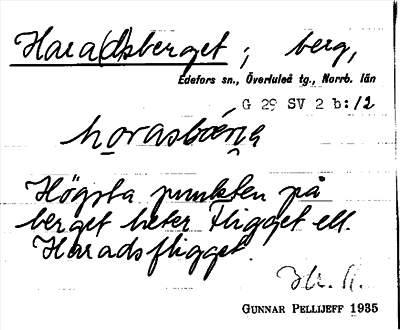 Hara(d)sberget; berg,
Edefors sn., Överluleå tg., Norrb. län
G 29 SV 2 b:12
Högsta punkten på
berget heter Fligget ell.
Haradsfligget.
GUNNAR PELLIJEFF 1935